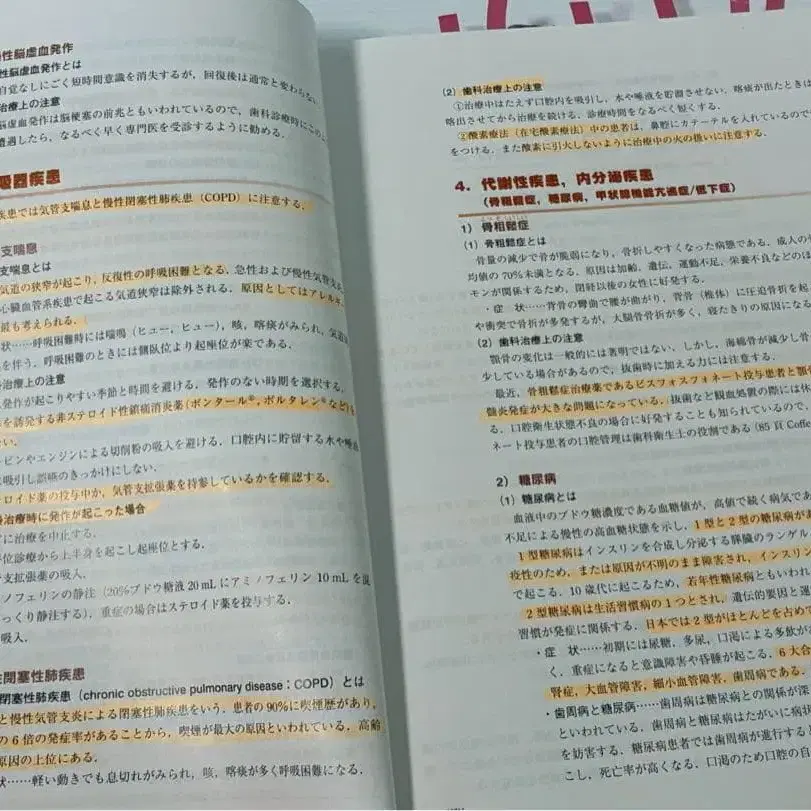 性脳虚血発作
性脳虚血発作とは
自覚なしにごく短時間意識を消失するが，回復後は通常と変わらない
治療上の注意
脳虚血発作は脳梗塞の前兆ともいわれているので，歯科診療時にこのよ
遭遇したら，なるべく早く専門医を受診するように勧める．
吸器疾患
疾患では気管支喘息と慢性閉塞性肺疾患（COPD）に注意する．
支喘息
支喘息とは
気道の狭窄が起こり，反復性の呼吸困難となる．急性および慢性気管支
心臓血管系疾患で起こる気道狭窄は除外される．原因としてはアレルギ
最も考えられる．
状……呼吸困難時には喘鳴（ヒュー，ヒュー），咳，喀痰がみられ，気道
を伴う．呼吸困難のときには側臥位より起座位が楽である．
治療上の注意
発作が起こりやすい季節と時間を避ける．発作のない時期を選択する．
を誘発する非ステロイド性鎮痛消炎薬（ポンタール®，ボルタレン®など）を
い．
ービンやエンジンによる切削粉の吸入を避ける．口腔内に貯留する水や唾
吸引し誤嚥のきっかけにしない．
ロイド薬の投与中か，気管支拡張薬を持参しているかを確認する．
治療時に発作が起こった場合
に治療を中止する．
位診療から上半身を起こし起座位とする．
支拡張薬の吸入．
ノフェリンの静注（20%ブドウ糖液 20 mL にアミノフェリン 10 mL を混
っくり静注する）．重症の場合はステロイド薬を投与する．
吸入．
閉塞性肺疾患
閉塞性肺疾患（chronic obstructive pulmonary disease：COPD）とは
と慢性気管支炎による閉塞性肺疾患をいう．患者の90%に喫煙歴があり，
の 6 倍の発症率があることから，喫煙が最大の原因といわれている．高齢
原因の上位にある．
状……軽い動きでも息切れがみられ，咳，喀痰が多く呼吸困難になる．
（2）歯科治療上の注意
①治療中はたえず口腔内を吸引し，水や唾液を貯留させない．喀痰が出たときは
喀出させてから治療を続ける．診療時間をなるべく短くする．
②酸素療法（在宅酸素療法）中の患者は，鼻腔にカテーテルを入れているので
をつける．また酸素に引火しないように治療中の火の扱いに注意する．
4．代謝性疾患，内分泌疾患
（骨粗鬆症，糖尿病，甲状腺機能亢進症/低下症）
1）骨粗鬆症
（1）骨粗鬆症とは
骨量の減少で骨が脆弱になり，骨折しやすくなった病態である．成人の
均値の 70%未満となる．原因は加齢，遺伝，運動不足，栄養不良などのほ
モンが関係するため，閉経以後の女性に好発する．
・症　状……背骨の彎曲で腰が曲がり，背骨（椎体）に圧迫骨折を起
や衝突で骨折が多発するが，大腿骨骨折が多く，寝たきりの原因になる
（2）歯科治療上の注意
顎骨の変化は一般的には著明ではない．しかし，海綿骨が減少し骨
少している場合があるので，抜歯時に加える力には注意する．
最近，骨粗鬆症治療薬であるビスフォスフォネート投与患者と顎
髄炎発症が大きな問題になっている．抜歯など観血処置の際には休
る．口腔衛生状態不良の場合に好発することも知られているので，
ネート投与患者の口腔管理は歯科衛生士の役割である（85 頁 Coffe
2）糖尿病
（1）糖尿病とは
血液中のブドウ糖濃度である血糖値が，高値で続く病気であ
不足による慢性の高血糖状態を示し，1 型と 2 型の糖尿病があ
1 型糖尿病はインスリンを合成し分泌する膵臓のランゲル
疫性のため，または原因が不明のまま障害され，インスリン
で起こる．10 歳代に起こるため，若年性糖尿病ともいわれ
2 型糖尿病は生活習慣病の 1 つとされ，遺伝的要因と運
習慣が発症に関係する．日本では 2 型がほとんどを占めて
・症　状……初期には尿糖，多尿，口渇による多飲が
く，重症になると意識障害や昏睡が起こる．6 大合
腎症，大血管障害，細小血管障害，歯周病である．
・歯周病と糖尿病……歯周病は糖尿病との関係が深
といわれている．歯周病と糖尿病はたがいに病状
を妨害する．糖尿病患者では歯周病が進行すると
こし，死亡率が高くなる．口渇のため口腔の自